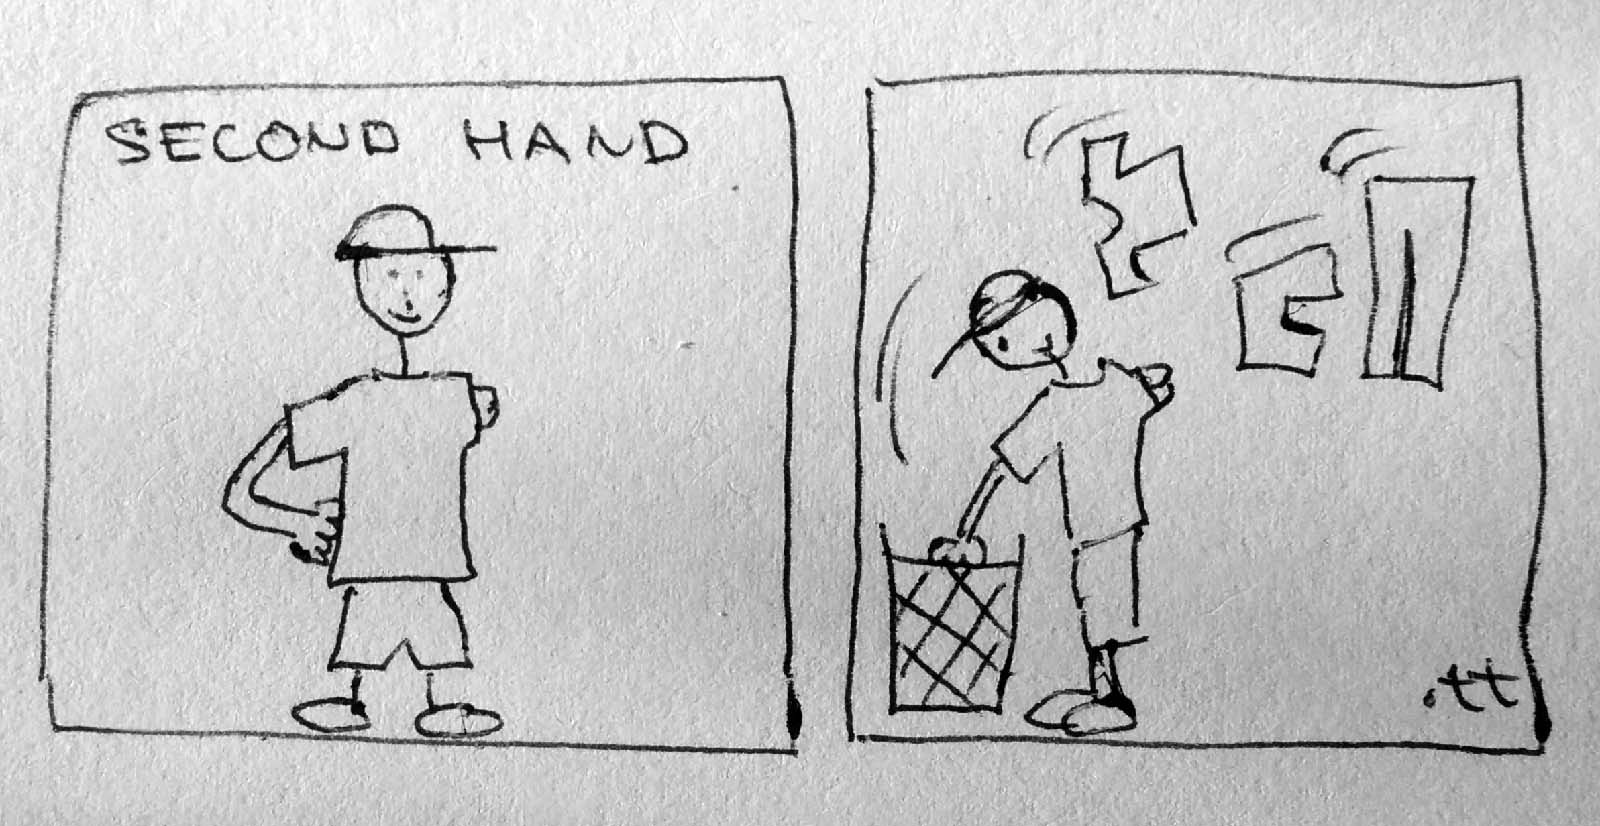 SECOND HAND
.tt